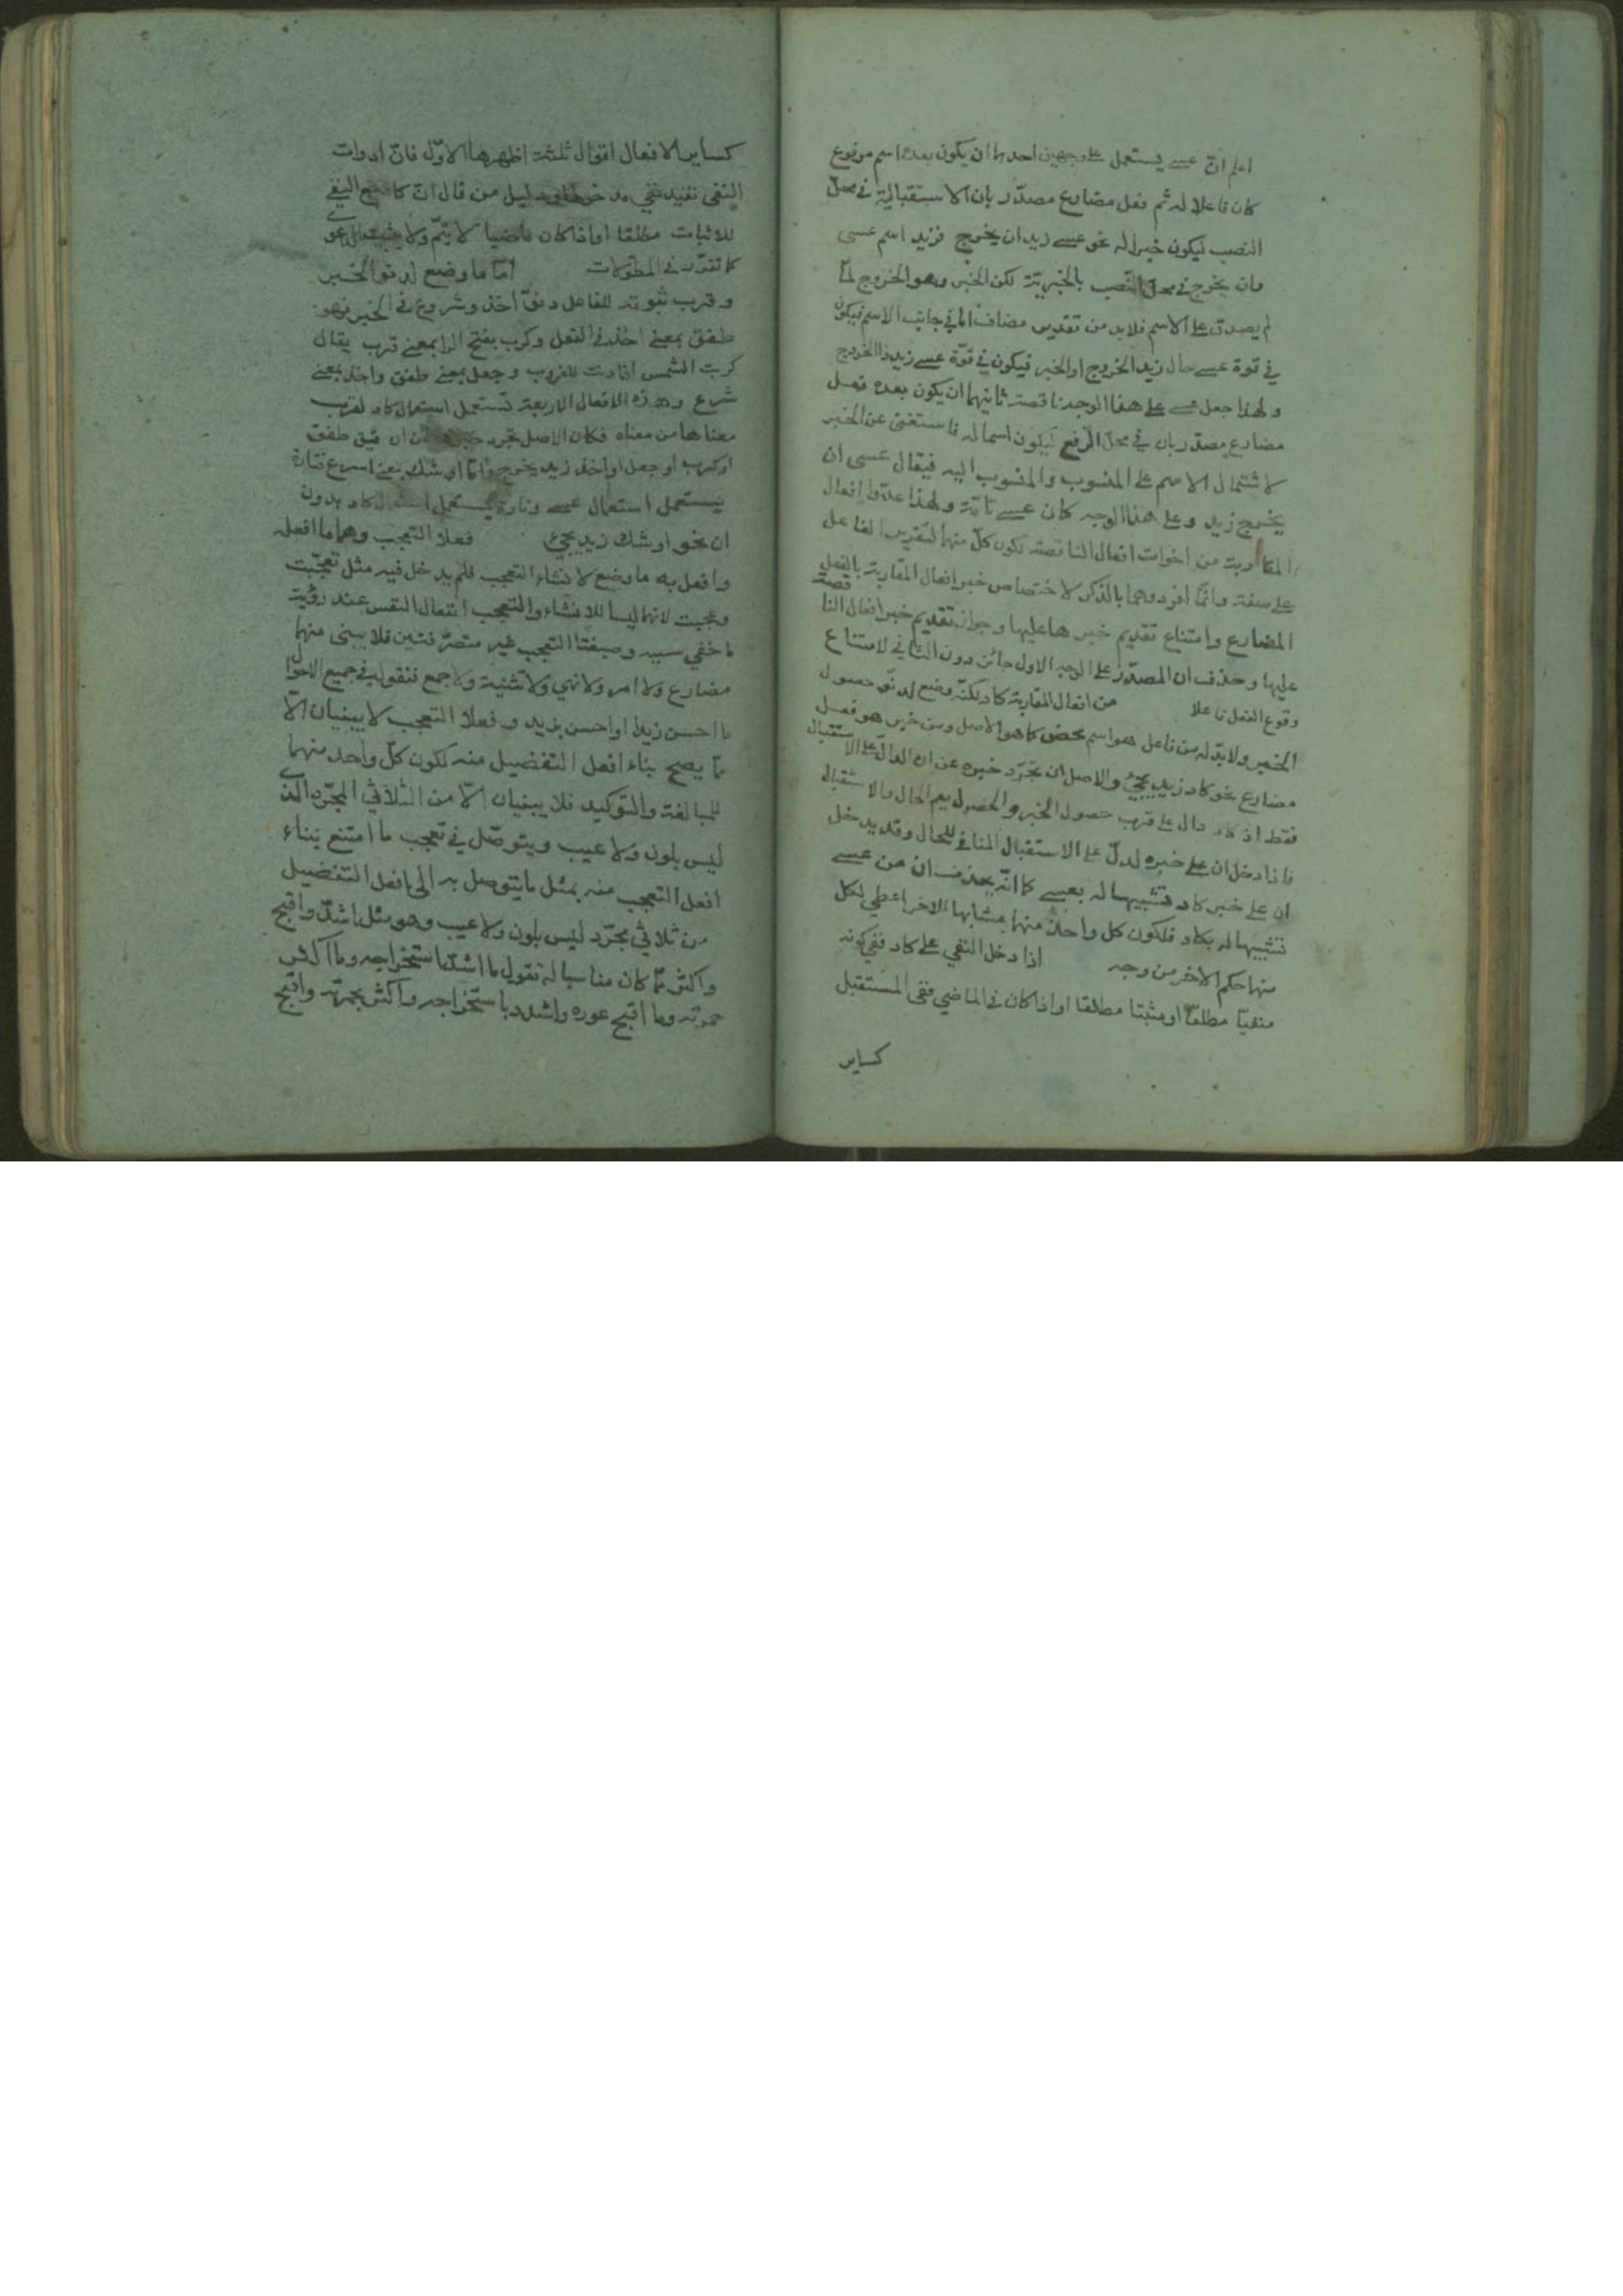 اعلم انّ عسى يستعمل على وجهين احدهما ان يكون بعده اسم مرفوع
كان فاعلا له ثم فعل مضارع مصدّر بان الاستقبالية في محلّ
النصب ليكون خبرا له نحو عسى زيد ان يخرج فزيد اسم عسى
وان يخرج في محلّ النّصب بالخبريّة لكن الخبر وهو الخروج لمّا
لم يصدق على الاسم فلا بد من تقدير مضاف امّا في جانب الاسم فيكون
في قوة عسى حال زيد الخروج او الخبر فيكون في قوّة عسى زيد ذا الخروج
ولهذا جعل عسى على هذا الوجه ناقصة ثانيهما ان يكون بعده فعل
مضارع مصدّر بان في محلّ الرّفع ليكون اسما له فاستغنى عن الخبر
لاشتمال الاسم على المنسوب والمنسوب اليه فيقال عسى ان
يخرج زيد وعلى هذا الوجه كان عسى تامّة ولهذا عدّوا افعال
المقاربة من اخوات افعال الناقصة لكون كلّ منهما لتقرير الفاعل
على صفة وانّما افردوهما بالذّكر لاختصاص خبر افعال المقاربة بالفعل
المضارع وامتناع تقديم خبرها عليها وجواز تقديم خبر افعال الناقصة
عليها وحذف ان المصدّر على الوجه الاول جائز دون الثاني لامتناع
وقوع الفعل فاعلا من افعال المقاربة كاد لكنّه وضع لدنوّ حصول
الخبر ولا بدّ له من فاعل هو اسم محض كما هو الاصل ومن خبر هو فعل
مضارع نحو كاد زيد يجيء والاصل ان تجرّد خبره عن ان الدالّ على الاستقبال
فقط اذ كاد دال على قرب حصول الخبر والحصول يعم الحال والاستقبال
فاذا دخل ان على خبره لدلّ على الاستقبال المنافي للحال وقد يدخل
ان على خبر كاد تشبيها له بعسى كما انّه يحذف ان من عسى
تشبيها له بكاد فلكون كل واحد منهما مشابها للاخر اعطى لكل
منهما حكم الاخر من وجه اذا دخل النفي على كاد ففي كونه
منفيّا مطلقا او مثبتا مطلقا او اذا كان في الماضي ففي المستقبل
كساير
كساير الافعال اقوال ثلثة اظهرها الاوّل فانّ ادوات
النفي تفيد نفي مدخولها دليل من قال انّ النفي
للاثبات مطلقا او اذا كان ماضيا لا يتمّ ولا
كما تقرّر في المطوّلات امّا ما وضع لدنو الخبر
وقرب ثبوته للفاعل دنوّ اخذ وشروع في الخبر فهو
طفق بمعنى اخذ في الفعل وكرب بفتح الرا بمعنى قرب يقال
كربت الشمس اذا دنت للغروب وجعل بمعنى طفق واخذ بمعنى
شرع وهذه الافعال الاربعة تستعمل استعمال كاد لقرب
معناها من معناه فكان الاصل تجرد خبرها عن ان طفق
او كرب او جعل او اخذ زيد يخرج وامّا اوشك بمعنى اسرع فتارة
يستعمل استعمال عسى وتارة يستعمل استعمال كاد بدون
ان نحو اوشك زيد يجيء فعلا التعجب وهما ما افعله
وافعل به ما وضع لانشاء التعجب فلم يدخل فيه مثل تعجّبت
وعجبت لانهما ليسا للانشاء والتعجب انفعال النفس عند رؤية
ما خفي سببه وصيغتا التعجب غير متصرّفتين فلا يبنى منهما
مضارع ولا امر ولا نهي ولا تثنية ولا جمع فنقول في جميع الاحوال
ما احسن زيدا او احسن بزيد وفعلا التعجب لا يبنيان الّا
ممّا يصح بناء افعل التفضيل منه لكون كلّ واحد منهما
للمبالغة والتوكيد فلا يبنيان الّا من الثلاثي المجرّد الذي
ليس بلون ولا عيب ويتوصّل في تعجب ما امتنع بناء
افعل التعجب منه بمثل ما يتوصل به الى بافعل التفضيل
من ثلاثي مجرّد ليس بلون ولا عيب وهو مثل اشدّ واقبح
واكثر ممّا كان مناسبا له تقول ما اشدّ استخراجه وما اكثر
حمرته وما اقبح عوره واشدد باستخراجه واكثر بحمرته واقبح